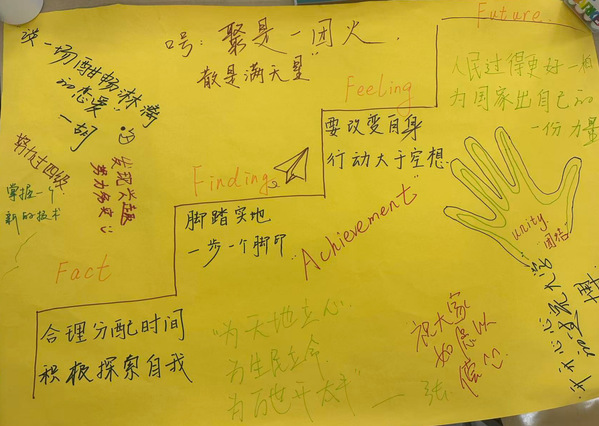 Future
口号：聚是一团火，
散是满天星”
谈一场酣畅淋漓
的恋爱”
一胡
Feeling
人民过得更好一点
为国家出自己的
一份力量
要改变自身
行动大于空想
努力过四级
发现兴趣
掌握一个
新的技术
Finding
脚踏实地
一步一个脚印
"Achievement"
unity
团结
Fact
合理分配时间
积极探索自我
“为天地立心
为生民立命
为万世开太平”
一张
祝大家
如愿以
偿
开开心心过大活